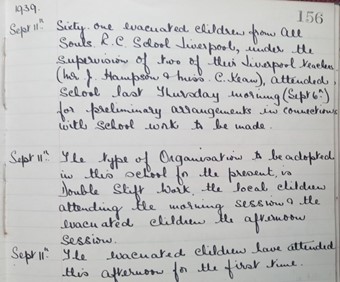 1939.
156
Sept 11th. Sixty-one evacuated children from All
Souls R.C. School Liverpool, under the
supervision of two of their Liverpool teachers
(Mr J. Hampson & Miss C. Kean), attended
School last Thursday morning (Sept 6th)
for preliminary arrangements in connection
with School work to be made.
Sept 11th. The type of Organisation to be adopted
in this school for the present, is
Double Shift Work, the local children
attending the morning session & the
evacuated children the afternoon
session.
Sept 11th. The evacuated children have attended
this afternoon for the first time.